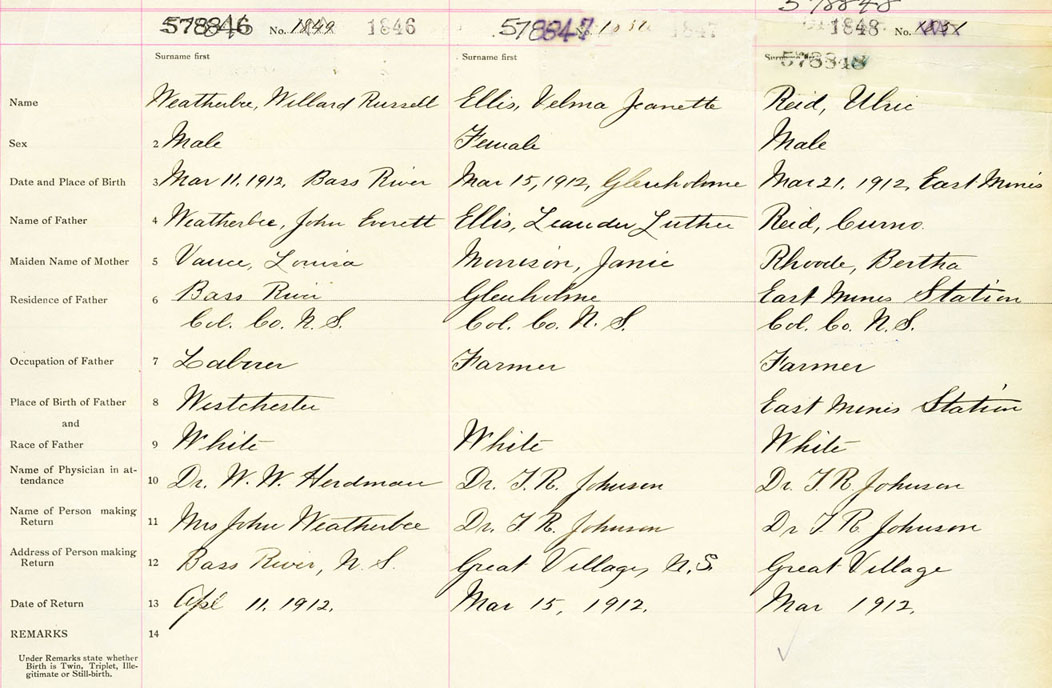 578848
578846 No. 1849 1846 578847 1847 1848 No.
Surname first Surname first 578848
Name Weatherbee, Willard Russell Ellis, Velma Jeanette Reid, Ulric
Sex 2 Male Female Male
Date and Place of Birth 3 Mar 11, 1912, Bass River Mar 15, 1912, Glenholme Mar 21, 1912, East Mines
Name of Father 4 Weatherbee, John Everett Ellis, Leander Luther Reid, Curno.
Maiden Name of Mother 5 Vance, Louisa Morrison, Janie Rhoode, Bertha
Residence of Father 6 Bass River Glenholme East Mines Station
Col. Co. N. S. Col. Co. N. S. Col. Co. N. S.
Occupation of Father 7 Laborer Farmer Farmer
Place of Birth of Father 8 Westchester East Mines Station
and
Race of Father 9 White White White
Name of Physician in at-
tendance 10 Dr. W. W. Herdman Dr. T. R. Johnson Dr. T R Johnson
Name of Person making
Return 11 Mrs John Weatherbee Dr. T. R. Johnson Dr T R Johnson
Address of Person making
Return 12 Bass River, N. S. Great Village, N. S. Great Village
Date of Return 13 Apl 11. 1912. Mar 15, 1912. Mar 1912.
REMARKS 14
Under Remarks state whether
Birth is Twin, Triplet, Ille-
gitimate or Still-birth.